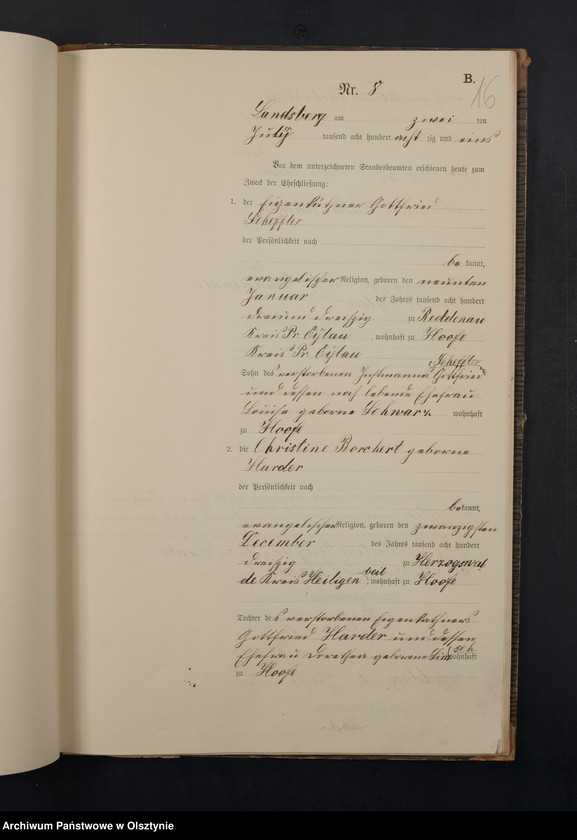 B.
16
Nr. 8
Landsberg am zwei ten
July tausend acht hundert acht zig und eins
Vor dem unterzeichneten Standesbeamten erschienen heute zum
Zweck der Eheschließung:
1. der Eigenkäthner Gottfried
Scheffler
der Persönlichkeit nach
be kannt,
evangelischer Religion, geboren den neunten
Januar des Jahres tausend acht hundert
dreiund dreißig zu Reddenau
Kreis Pr. Eylau, wohnhaft zu Hoofe
Kreis Pr. Eylau
Sohn des verstorbenen Instmanns Gottfried Scheffler
und dessen noch lebende Ehefrau
Louise geborne Schwarz wohnhaft
zu Hoofe
2. die Christine Borchert geborne
Harder
der Persönlichkeit nach
bekannt,
evangelischer Religion, geboren den zwanzigsten
December des Jahres tausend acht hundert
dreißig zu Herzogswal
de Kreis Heiligenbeil, wohnhaft zu Hoofe
Tochter des verstorbenen Eigenkäthners
Gottfried Harder und dessen
Ehefrau Dorothea geborne wohnhaft
zu Hoofe
Archiwum Państwowe w Olsztynie